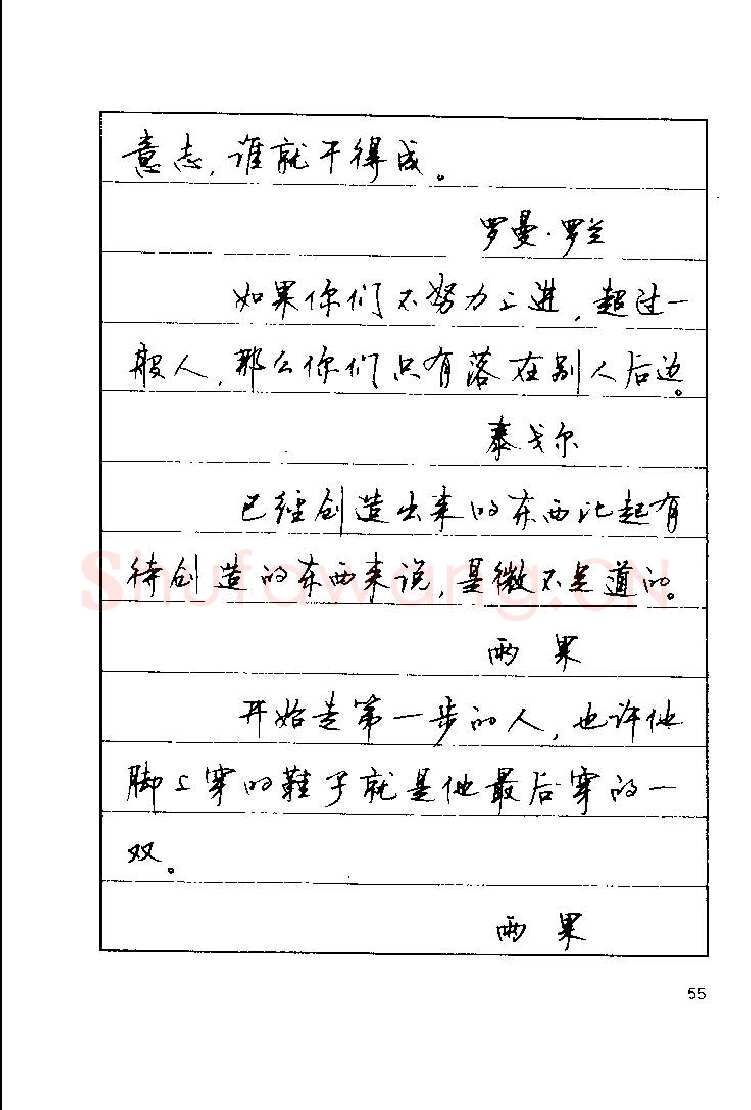 意志,谁就干得成。
罗曼·罗兰
如果你们不努力上进,超过一
般人,那么你们只有落在别人后边。
泰戈尔
已经创造出来的东西比起有
待创造的东西来说,是微不足道的。
Shufawang.CN
雨果
开始走第一步的人,也许他
脚上穿的鞋子就是他最后穿的一
双。
雨果
55